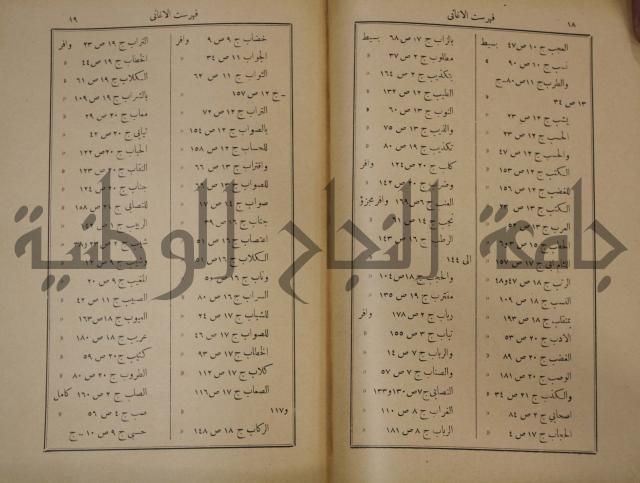 ١٨
فهرست الاغانى
العجب ج ١٠ ص ٤٧ بسيط
نسب ج ١٠ ص ٩٠ »
والطرب ج ١١ ص ٨٠ – ج
١٣ ص ٣٤
يشب ج ١٢ ص ٢٣ »
الحسب ج ١٢ ص ٢٣ »
والحسب ج ١٢ ص ٤٧ »
الكتب ج ١٢ ص ١٥٣ »
للغضب ج ١٢ ص ١٥٦ »
الكتب ج ١٣
العرب ج ١٣
ج ١٥ ص
ج ١٧ ص ١٥٧
الرتب ج ١٨ ص ٤٧ و ٤٨
النسب ج ١٨ ص ١٠٩ »
بمنقلب ج ١٨ ص ١٩٣ »
الادب ج ٢٠ ص ٥٣ »
الغضب ج ٢٠ ص ٨٩ »
الوصب ج ٢٠ ص ١٨١ »
والكذب ج ٢١ ص ٣٤ »
اصحابى ج ٢ ص ٨٤ »
الحجاب ج ١٧ ص ٤ »
بالزاب ج ١٧ ص ٦٨ بسيط
مطلوب ج ٢ ص ٣٧ »
بتكذيب ج ٢ ص ١٦٤ »
الطيب ج ١٢ ص ١٣٢ »
النوب ج ١٣ ص ٦٠ »
والذيب ج ١٣ ص ٧٥ »
تكذيب ج ١٩ ص ٨٠ »
كلب ج ٢٠ ص ١٢٤ وافر
ج ٢٠ ص ١٤٢ »
ج ٦ ص ١٦٩ وافر مجزؤ
ج ١٤ ص
الرطب ج ١٦ ص ١٤٣
الى ١٤٤
ج ١٨ ص ١٠٤ »
مقترب ج ١٩ ص ١٣٥ »
رباب ج ٢ ص ١٧٨ وافر
تياب ج ٣ ص ١٥٥ »
والرباب ج ٧ ص ١٤ »
والصناب ج ٧ ص ٥٧ »
التصابى ج ٧ ص ١٣٠ و ١٣٣
الغراب ج ٨ ص ١١٠ »
الرباب ج ٨ ص ١٨١ »
فهرست الاغانى
١٩
خضاب ج ٩ ص ٩ وافر
الجواب ج ١١ ص ٣٤ »
الثواب ج ١١ ص ٦٢
– ج ١٢ ص ١٥٧ »
التراب ج ١٢ ص ٧٢ »
بالصواب ج ١٢ ص ١٥٤ »
للحساب ج ١٢ ص ١٥٨ »
واقتراب ج ١٣ ص ٦٦ »
للصواب ج ١٣ ص
صواب ج ١٤ ص
ج ١٦ ص ٣٩
ج ١٦ ص ٥١
الكلاب ج ١٦ ص
ج ١٦ ص
السراب ج ١٦ ص ٨٠ »
للشباب ج ١٧ ص ٢٤ »
للصواب ج ١٧ ص ٤٦ »
الخطاب ج ١٧ ص ٩٣ »
كلاب ج ١٧ ص ١١٢ »
الصعاب ج ١٧ ص ١١٦
و ١١٧ »
الركاب ج ١٨ ص ١٤٨ »
التراب ج ١٩ ص ٢٣ وافر
الخطاب ج ١٩ ص ٤٤ »
الكلاب ج ١٩ ص ٦١ »
بالشراب ج ١٩ ص ١٠٩ »
معاب ج ٢٠ ص ٢٩ »
ثيابى ج ٢٠ ص ٤٢ »
الحباب ج ٢٠ ص ١٢٢ »
النقاب ج ٢٠ ص ١٢٣ »
جناب ج ٢٠ ص ١٢٤ »
للتصابى ج ٢٠ ص ١٥٨ »
الربيب ج ١ ص
ج ٢ ص
ج ٨ ص
المغيب ج ٩ ص ٢٠
الصبيب ج ١١ ص ٤٢ »
الهبوب ج ١٨ ص ١٦٣ »
عريب ج ١٨ ص ١٨٠ »
كثيب ج ٢٠ ص ٥٩ »
الطروب ج ٢٠ ص ٨٠ »
الصلب ج ٢ ص ١٦٠ كامل
صب ج ٤ ص ٥٦ »
حسبى ج ٩ ص ١٠ – ج
جامعة النجاح الوطنية